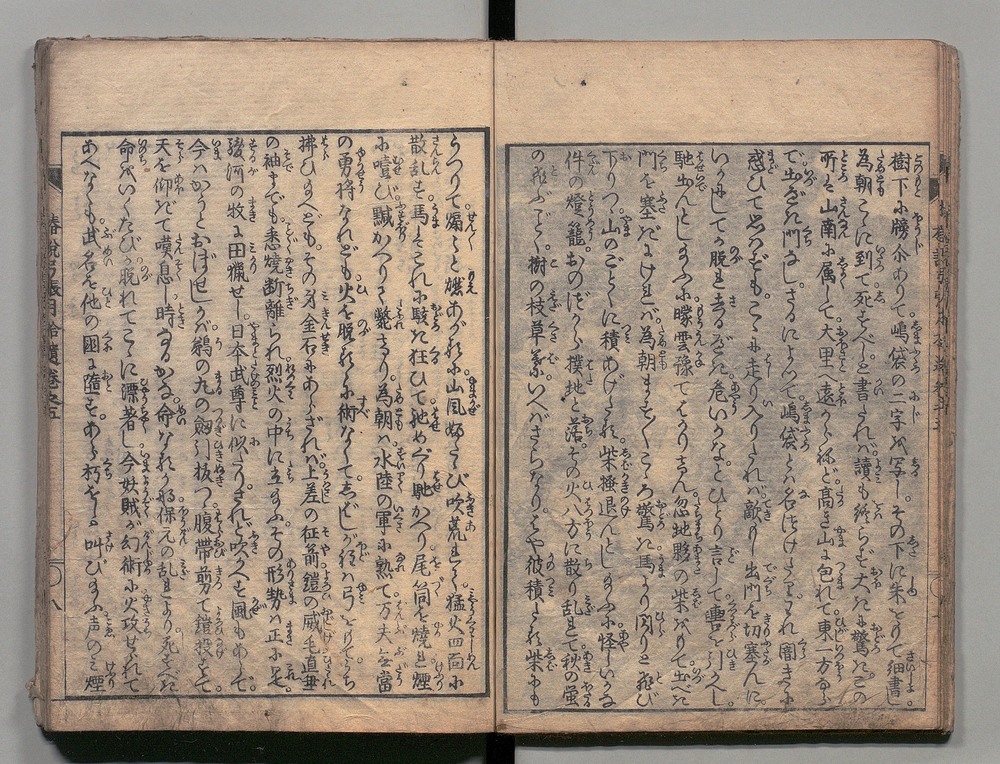 樹下に牓尓ありて嶋袋の二字を写し。その下に朱をもて細書し
為朝こゝに到て死すべしと書されバ。讀も終らず大に驚き。この
所ハ山南に属して大里へ遠からねど高き山に包れて東一方ならで
で出べき門なし。さるによつて嶋袋とハ名づけたり。われ闇きに
惑ひて思ハずもこゝに走り入りたれバ。敵もし出門を切塞んに
いかにして脱れ去るべき。危いかなとひとり言して轡を引かへし
馳出んとしたまふに朦雲豫てはかりけん。忽地夥の柴をもて。出べき
門を塞だりけれバ。為朝ますくこゝろ驚き馬よりひらりと飛び
下りつ。山のごとくに積あげたる。柴掻退んとしたまふに怪しいかな
件の燈籠おのづから撲地と落。その火八方に散り乱れて秋の螢
の飛ぶごとく。樹の枝草葉ハいへばさらなり。はや彼積たる柴にも
うつりて爓〻と燃あがれバ山風颯とさび吹荒れて。猛火四面に
散乱す。馬ハこれに駭き狂ひて馳めぐり馳かへり尾筒を焼れ煙
に噎び。瞬かへりて斃たり。為朝ハ水陸の軍に熟て万夫無當
の勇将なれども火を脱れるに術なくて。しばしが程ハ弓をもてうち
拂ひたまへども。その身金石にあらざれバ。上差の征箭鎧の威毛直垂
の袖までも。悉焼断離られ。烈火の中に立たまふ。その形勢ハ正にこれ。
駿河の牧に田獵せし。日本武尊に似たりされど。吹かへす風もあらで。
今ハかうとおぼせしかバ。鵜の丸の劔引抜つ。腹帶剪て鎧投すて。
天を仰ぎて嘆息し。時なるかな命なるかな。保元の乱より死すべき
命をいくたびか脱れて。こゝに漂著し。今妖賊が幻術に火攻せられて
あへなくも。武名を他の國に墮す。あら朽をしと。叫びたまふ声のミ煙
椿説弓張月拾遺巻之五
八